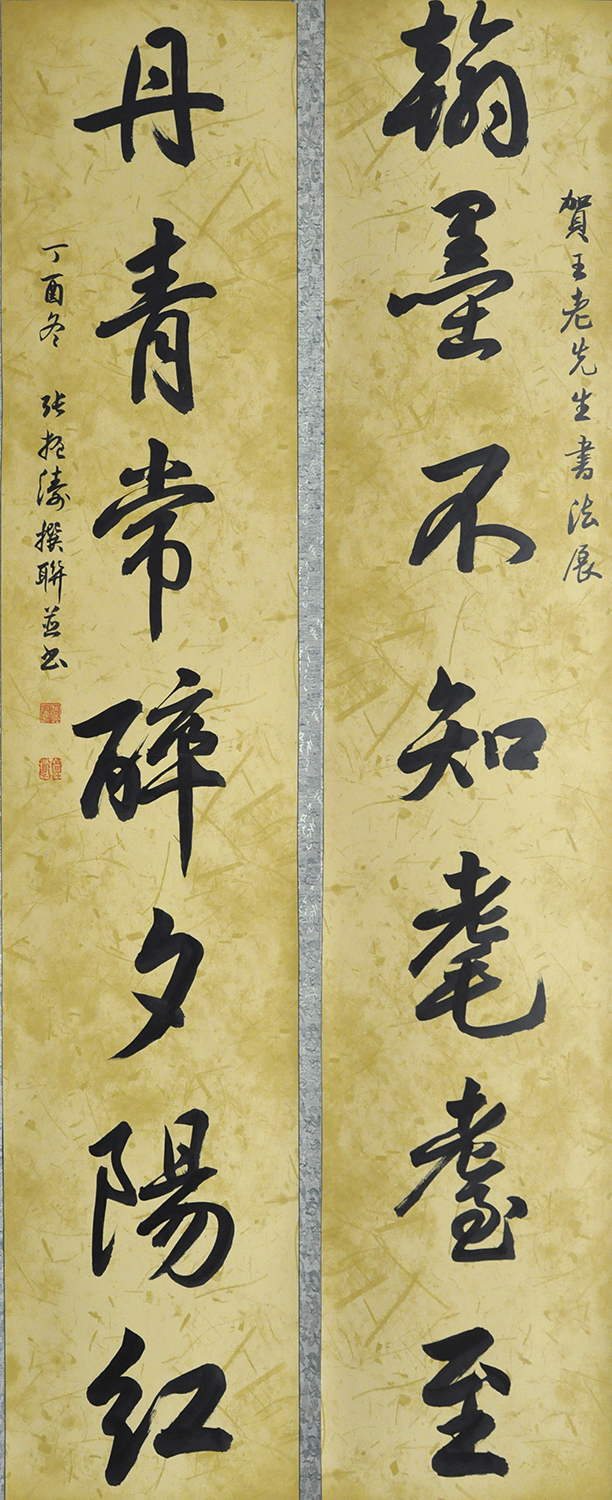 賀王老先生書法展
翰墨不知耄耋至
丹青常醉夕陽紅
丁酉冬 张振濤撰聯並书